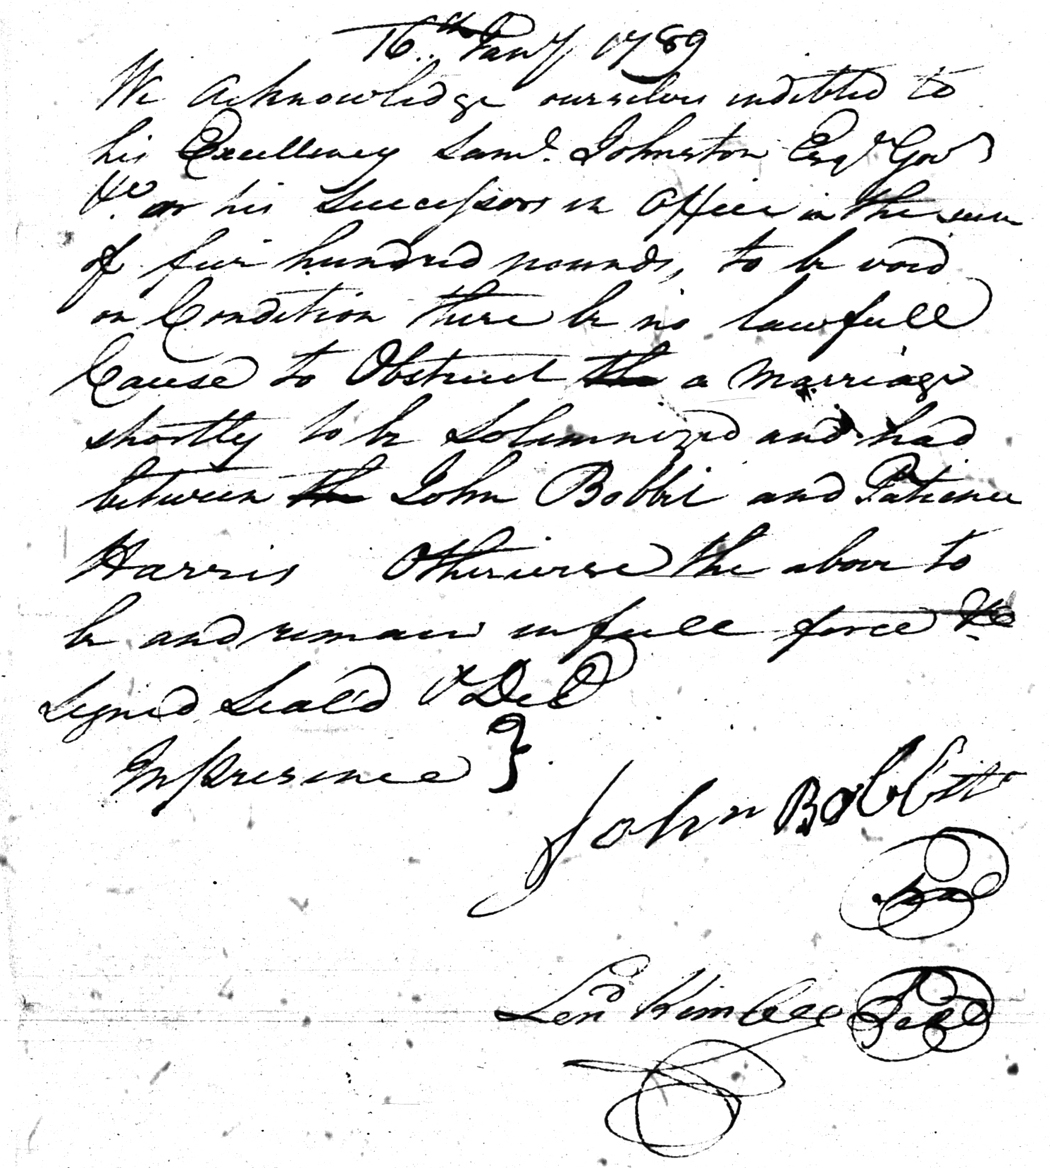 16th Jany 1789
We Acknowledge ourselves indebted to
his Excellency Saml. Johnston Esqr. Govr
&c. or his Successors in Office in the sum
of five hundred pounds, to be void
on Condition there be no lawfull
Cause to Obstruct the a Marriage
shortly to be Solemnized and had
between the John Bobbit and Patience
Harris Otherwise the above to
be and remain in full force &c
Signed Seal'd & Deld
In presence }
John Bobbitt
Seal
Lend Kimbell Seal